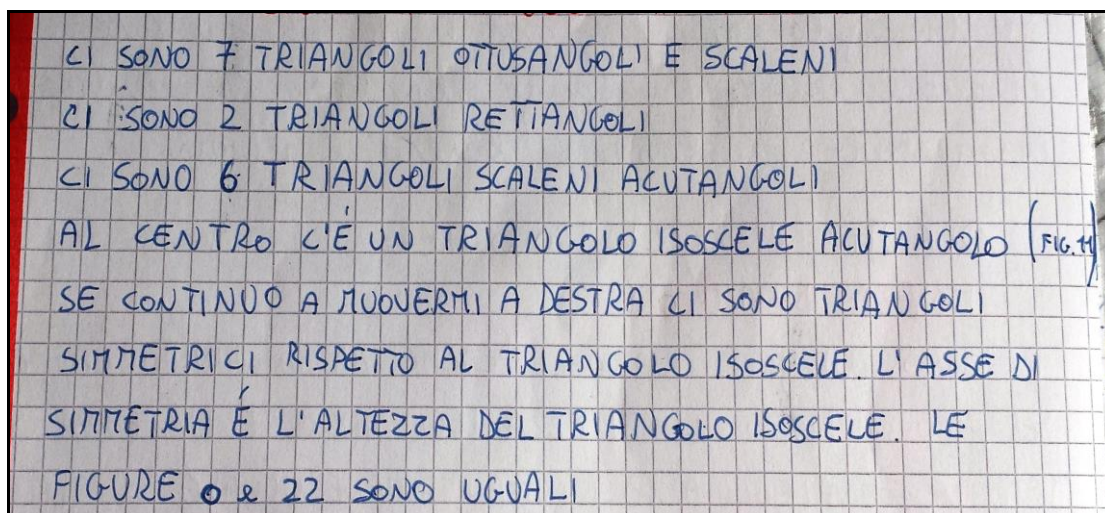 CI SONO 7 TRIANGOLI OTTUSANGOLI E SCALENI
CI SONO 2 TRIANGOLI RETTANGOLI
CI SONO 6 TRIANGOLI SCALENI ACUTANGOLI
AL CENTRO C'É UN TRIANGOLO ISOSCELE ACUTANGOLO (FIG. 11)
SE CONTINUO A MUOVERMI A DESTRA CI SONO TRIANGOLI
SIMMETRICI RISPETTO AL TRIANGOLO ISOSCELE. L'ASSE DI
SIMMETRIA É L'ALTEZZA DEL TRIANGOLO ISOSCELE. LE
FIGURE 0 e 22 SONO UGUALI